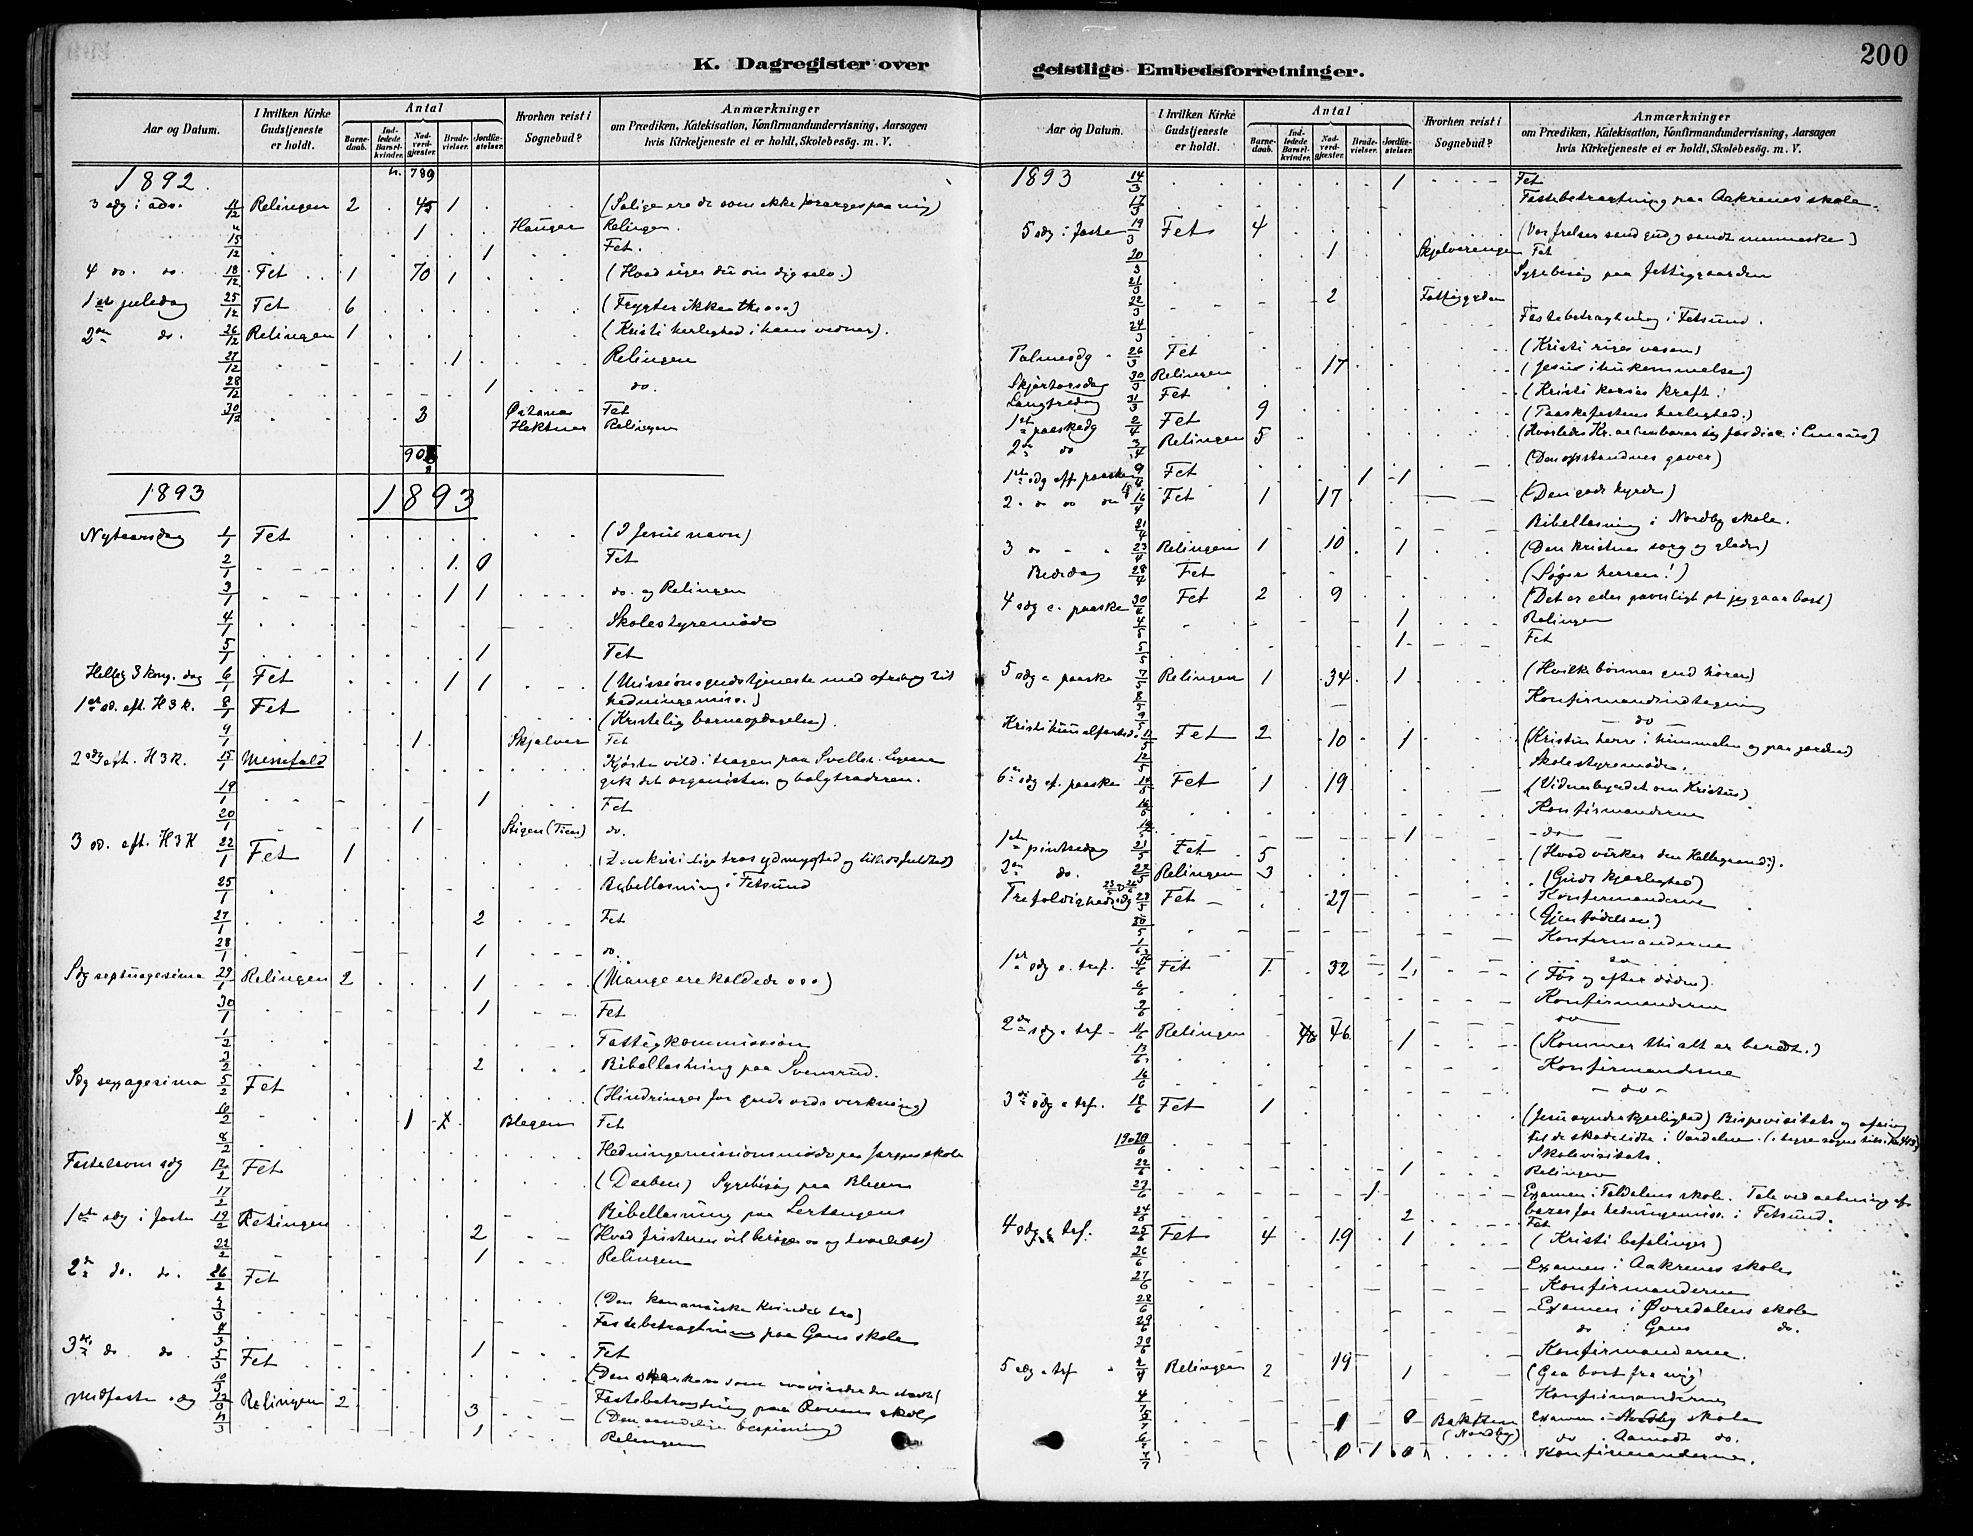 200
K. Dagregister over
Aar og Datum.
I hvilken Kirke Gudstjeneste er holdt.
Antal
Barnedaab.
Indledede Barselkvinder.
Nadverdgjester.
Brudevielser.
Jordfæstelser.
Hvorhen reist i Sognebud?
Anmærkninger
om Prædiken, Katekisation, Konfirmandundervisning, Aarsagen
hvis Kirketjeneste ei er holdt, Skolebesøg. m. V.
1892 789
3 sdg i adv. 11/12 Relingen 2 45 1 (Salige ere de som ikke forarges paa mig)
1 Hauger Relingen.
15/12 1 Fet.
4 do. do. 18/12 Fet 1 70 1 (Hvad siger du om dig selv.)
1ste juledag 25/12 Fet 6 (Frygter ikke thi ooo)
2den do. 26/12 Relingen 1 (Kristi herlighed i hans vidner).
27/12 1 Relingen
28/12 1 do.
30/12 3 Fet
Hektner Relingen
1893 1893
Nytaarsdag 1/1 Fet (I Jesus navn)
2/1 1 0 Fet
3/1 1 1 do. og Relingen
4/1 Skolestyremøde
5/1 1 Fet
Hellig 3 kong. dag 6/1 Fet 1 1 (Missionsgudstjeneste med ofring til
hedningemiss.)
1ste sd. eft. H 3 k. 8/1 Fet (Kristelig barneopdragelse).
9/1 1 Skjalver Fet
2 sdg eft. H 3 K. 15/1 Messefald Kjørte vild i taagen paa Svellet.
gik det organisten og bælgtræderen.
19/1 1 Fet
20/1 1 Stigen (Tien) do.
3 sd. eft. H 3 K 22/1 Fet 1 (Den kristelige tros ydmyghed og tillidsfuldhed)
25/1 Bibellæsning i Fetsund
27/1 2 Fet
28/1 1 do.
Sdg septuagesima 29/1 Relingen 2 1 (Mange ere kaldede ooo)
30/1 1 Fet
1/2 Fattigkommission
3/2 2 Bibellæsning paa Svensrud.
Sdg sexagesima 5/2 Fet (Hindringer for guds ords virkning)
1 Blegen Fet
8/2 Hedningemissionsmøde paa skole
Fastelavns sdg 12/2 Fet (Daaben) Sygebesøg paa Blegen
17/2 Bibellæsning paa Lertangens
1ste sdg i faste 19/2 Relingen 2 (Hvad fristeren vil os og hvorledes)
22/2 1 Relingen
2den do. do. 26/2 Fet (Den kananæiske kvindes tro)
3/3 Fastebetragtning paa Gans skole
4/3 1 Fet
3die do. do. 5/3 Fet (Den stærkere som overvinder den stærke)
10/3 Fastebetragtning paa Rovens skole
Midfaste sdg 12/3 Relingen 2 3 (Den aandelige bespisning)
1 Relingen
geistlige Embedsforretninger.
Aar og Datum.
I hvilken Kirke Gudstjeneste er holdt.
Antal
Barnedaab.
Indledede Barselkvinder.
Nadverdgjester.
Brudevielser.
Jordfæstelser.
Hvorhen reist i Sognebud?
Anmærkninger
om Prædiken, Katekisation, Konfirmandundervisning, Aarsagen
hvis Kirketjeneste ei er holdt, Skolebesøg. m. V.
1893 14/3 1 Fet
17/3 Fastebetragtning paa Aakrenes skole.
5 sdg i faste 19/3 Fet 4 (Vor frelser sand gud og sandt menneske)
20/3 1 Skjalverengen Fet
21/3 Sygebesøg paa fattiggaarden
22/3 2 Fattiggrden
24/3 Fastebetragtning i Fetsund.
Palmesdg 26/3 Fet (Kristi riges væsen)
Skjærtorsdag 30/3 Relingen 17 (Jesus ihukommelse)
Langfredag 31/3 Fet (Kristi korses kraft.
1ste paaskedg 2/4 Fet 9 (Paaskefestens herlighed.)
2den do 3/4 Relingen 5 (Hvorledes Kr. aabenbarer sig for disc. i Emaus)
1ste sdg eft paaske 9/4 Fet 1 1 (Den opstandnes gaver)
2. do do do 16/4 Fet 1 17 (Den gode hyrde)
21/4 Bibellæsning i Nordby skole.
3 do 23/4 Relingen 1 10 1 (Den kristnes sorg og glæde)
Bededag 28/4 Fet (Søger herren!)
4 sdg e. paaske 30/4 Fet 2 9 (Det er eder gavnligt at jeg gaar bort)
4/5 1 Relingen
5/5 1 Fet
5 sdg e paaske 7/5 Relingen 1 34 1 (Hvilke bønner gud hører)
8/5 Konfirmandindtagning
9/5 do
Kristi himmelfartsd. 11/5 Fet 2 10 1 (Kristus herre i himmelen og paa jorden)
12/5 Skolestyremøde.
6te sdg ef. paaske 14/5 Fet 1 19 (Vidnesbyrdet om Kristus)
Konfirmanderne
1 do
1ste pintsedag 21/5 Fet 5 (Hvad virker den Helligaand?).
2den do. 22/5 Relingen 3 (Guds kjærlighed)
Konfirmanderne
Trefoldighedssdg 28/5 Fet 27 (Gjenfødelsen)
30/5 Konfirmanderne
1/6 do
1ste sdg e. tref. 4/6 Fet 1 32 1 (Før og efter døden).
6/6 Konfirmanderne
do
2den sdg e tref 11/6 Relingen 46 1 (Kommer thi alt er beredt.)
13/6 Konfirmanderne
16/6 do
3die sdg e tref. 18/6 Fet 1 (Jesu synderkjærlighed) Bispevisitats og ofring
til de skadelidte i Værdalen.
19 20/6 Skolevisitats.
22/6 1 Relingen
23/6 1 Examen i Faldalens skole. Tale ved aabning af
24/6 2 basar for hedningemiss. i Fetsund.
Fet
4 sdg e tref. 25/6 Fet 4 19 1 (Kristi befalinger)
26/6 Examen i Aakrenes skole
27/6 Konfirmanderne
28/6 Examen i Øvredalens skole
29/6 do i Gans do.
30/6 Konfirmanderne.
5 sdg e tref 2/7 Relingen 2 19 1 (Gaa bort fra mig)
4/7 Konfirmanderne
5/7 1 0 Bakken (Nordby) Examen i Nordby skole
6/7 do Aamodt do.
7/7 0 1 0 Konfirmanderne.